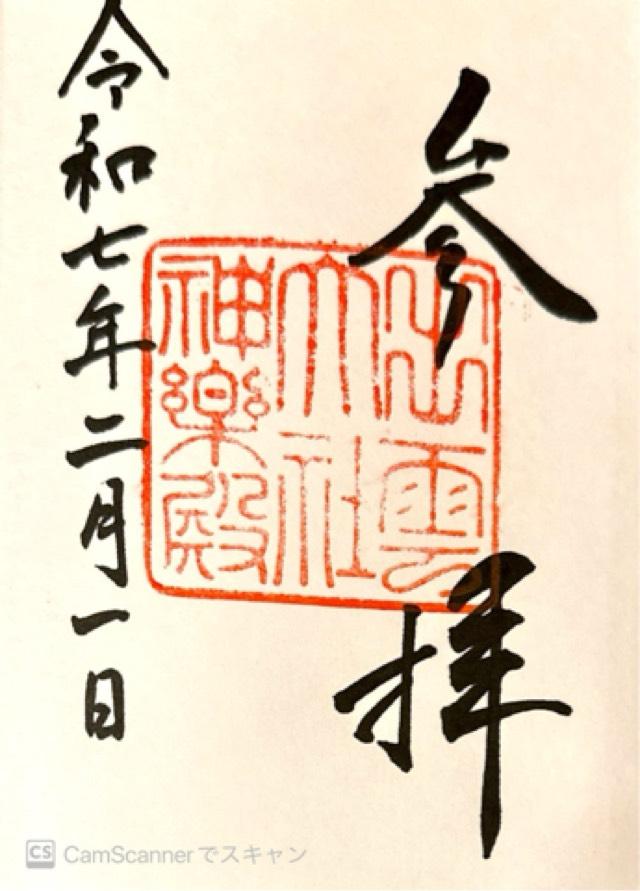 参拝
出雲
大社
神楽殿
令和七年二月一日
CS CamScannerでスキャン